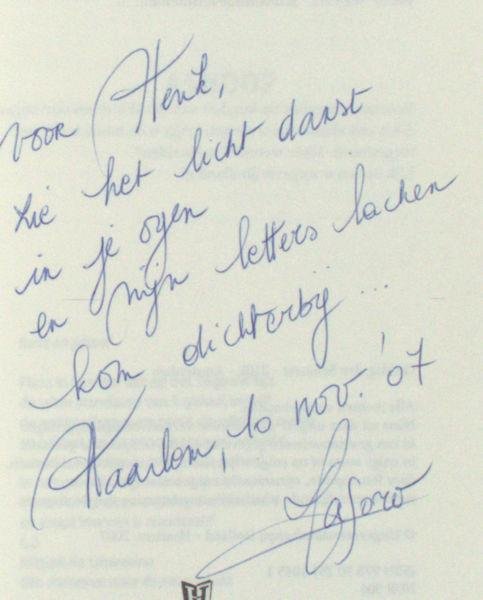 Voor Henk,
zie het licht danst
in je ogen
en mijn letters lachen
kom dichterbij...
Haarlem, 10 nov. '07